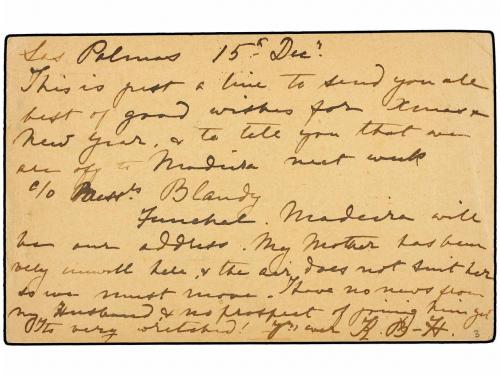 Las Palmas 15th Decr.
This is just a line to send you all
best of good wishes for Xmas &
New Year, & to tell you that we
are off to Madeira next week
c/o Messrs Blandy
Funchal. Madeira will
be our address. My Mother has been
very unwell here, & the air does not suit her
so we must move. I have no news from
my Husband & no prospect of joining him yet
very wretched! Yrs ever B-H.
3